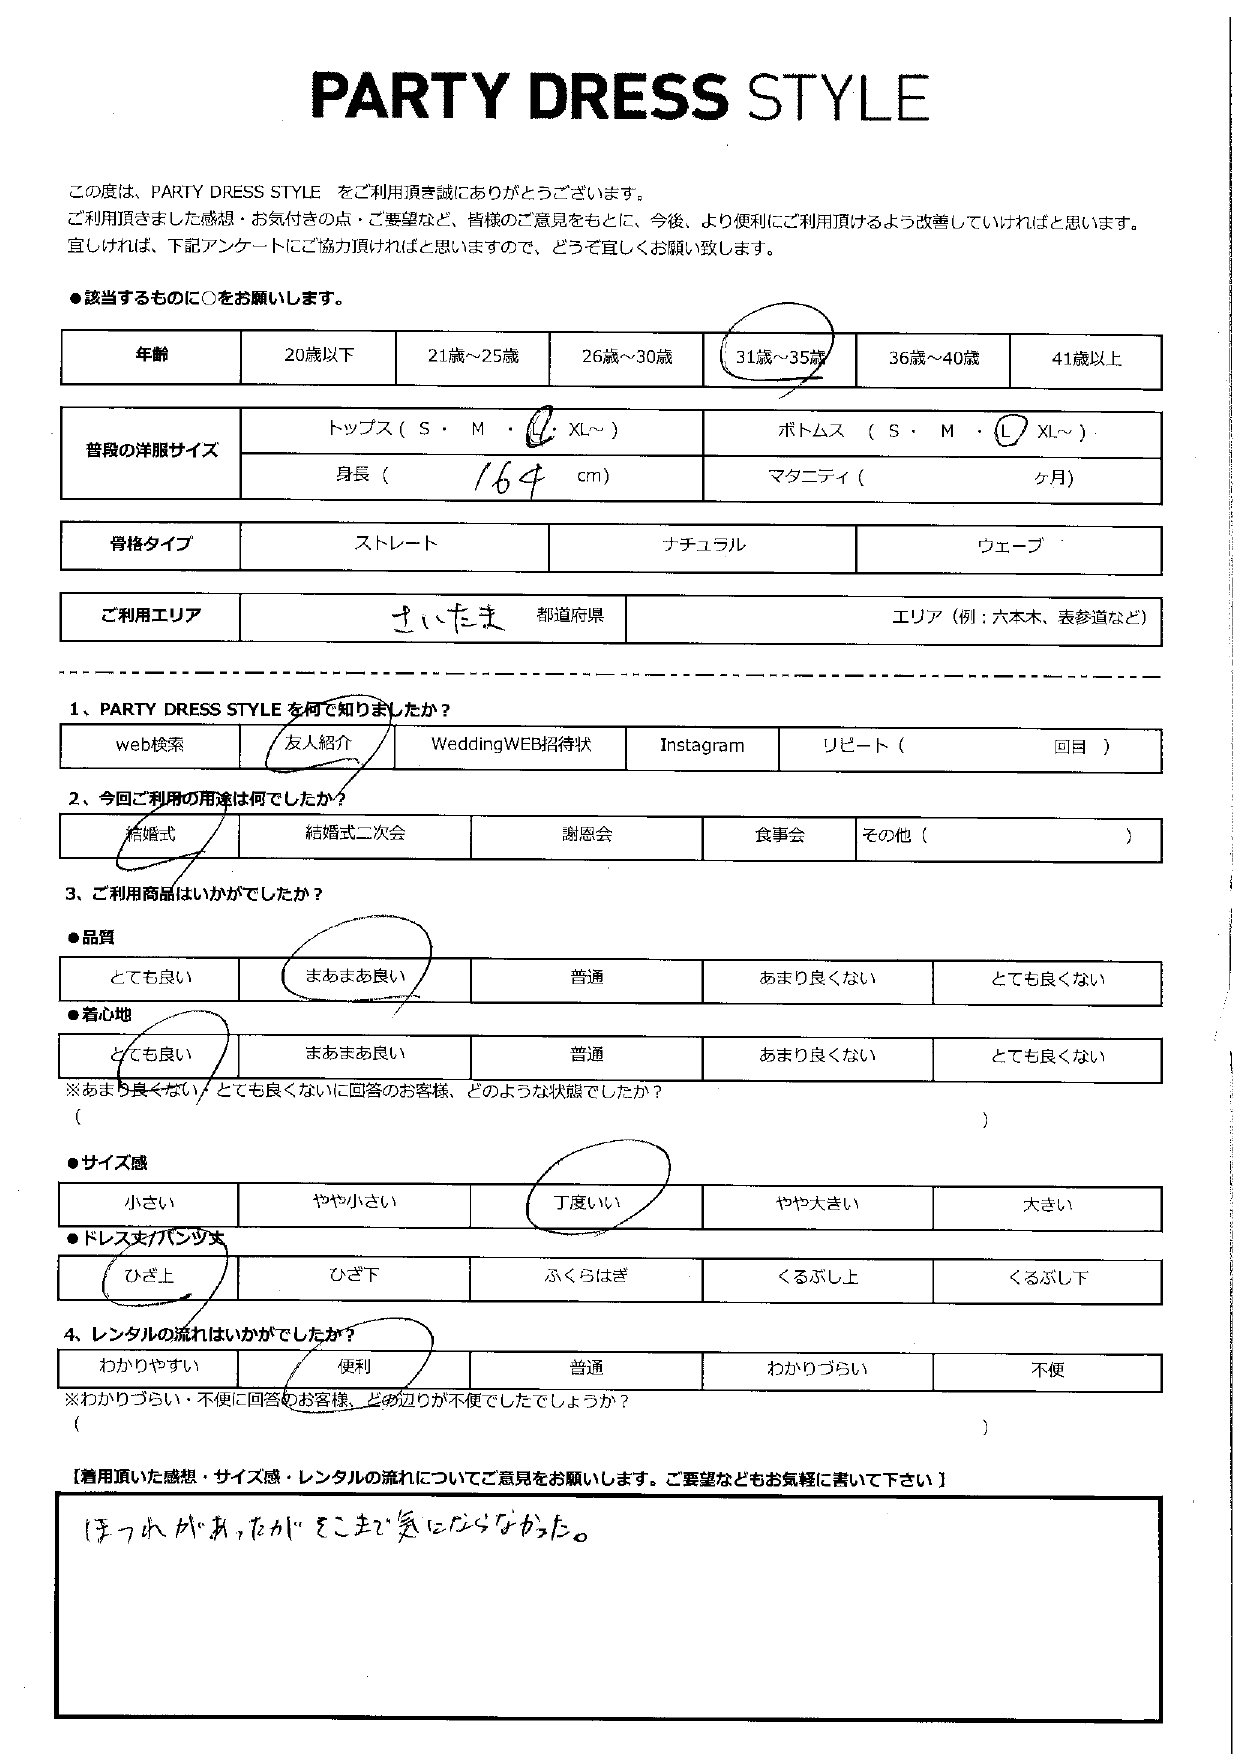 PARTY DRESS STYLE
この度は、PARTY DRESS STYLE をご利用頂き誠にありがとうございます。
ご利用頂きました感想・お気付きの点・ご要望など、皆様のご意見をもとに、今後、より便利にご利用頂けるよう改善していければと思います。
宜しければ、下記アンケートにご協力頂ければと思いますので、どうぞ宜しくお願い致します。
●該当するものに○をお願いします。
年齢 20歳以下 21歳～25歳 26歳～30歳 31歳～35歳 36歳～40歳 41歳以上
普段の洋服サイズ
トップス ( S ・ M ・ L ・ XL～ ) ボトムス ( S ・ M ・ L XL～ )
身長 ( 164 cm) マタニティ ( ヶ月)
骨格タイプ ストレート ナチュラル ウェーブ
ご利用エリア さいたま 都道府県 エリア（例：六本木、表参道など）
1、PARTY DRESS STYLE を何で知りましたか？
web検索 友人紹介 WeddingWEB招待状 Instagram リピート ( 回目 )
2、今回ご利用の用途は何でしたか？
結婚式 結婚式二次会 謝恩会 食事会 その他 ( )
3、ご利用商品はいかがでしたか？
●品質
とても良い まあまあ良い 普通 あまり良くない とても良くない
●着心地
とても良い まあまあ良い 普通 あまり良くない とても良くない
※あまり良くない・とても良くないに回答のお客様、どのような状態でしたか？
( )
●サイズ感
小さい やや小さい 丁度いい やや大きい 大きい
●ドレス丈/パンツ丈
ひざ上 ひざ下 ふくらはぎ くるぶし上 くるぶし下
4、レンタルの流れはいかがでしたか？
わかりやすい 便利 普通 わかりづらい 不便
※わかりづらい・不便に回答のお客様、どの辺りが不便でしたでしょうか？
( )
【着用頂いた感想・サイズ感・レンタルの流れについてご意見をお願いします。ご要望などもお気軽に書いて下さい】
ほつれがあったがそこまで気にならなかった。